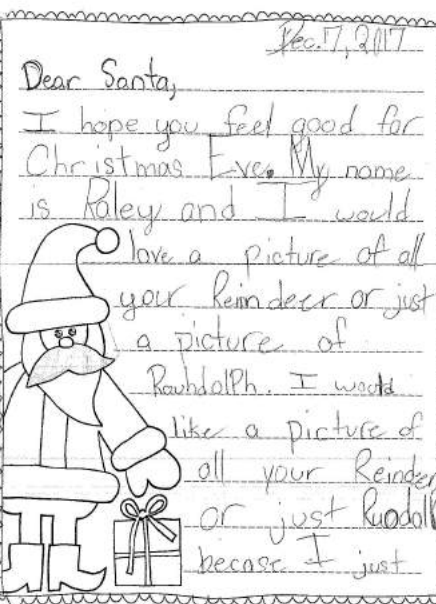 Dec. 7, 2017
Dear Santa,
I hope you feel good for
Christmas Eve. My name
is Raley and I would
love a picture of all
your Reindeer or just
a picture of
Rauhdolph. I would
like a picture of
all your Reindeer
or just Ruodolf
becase I just